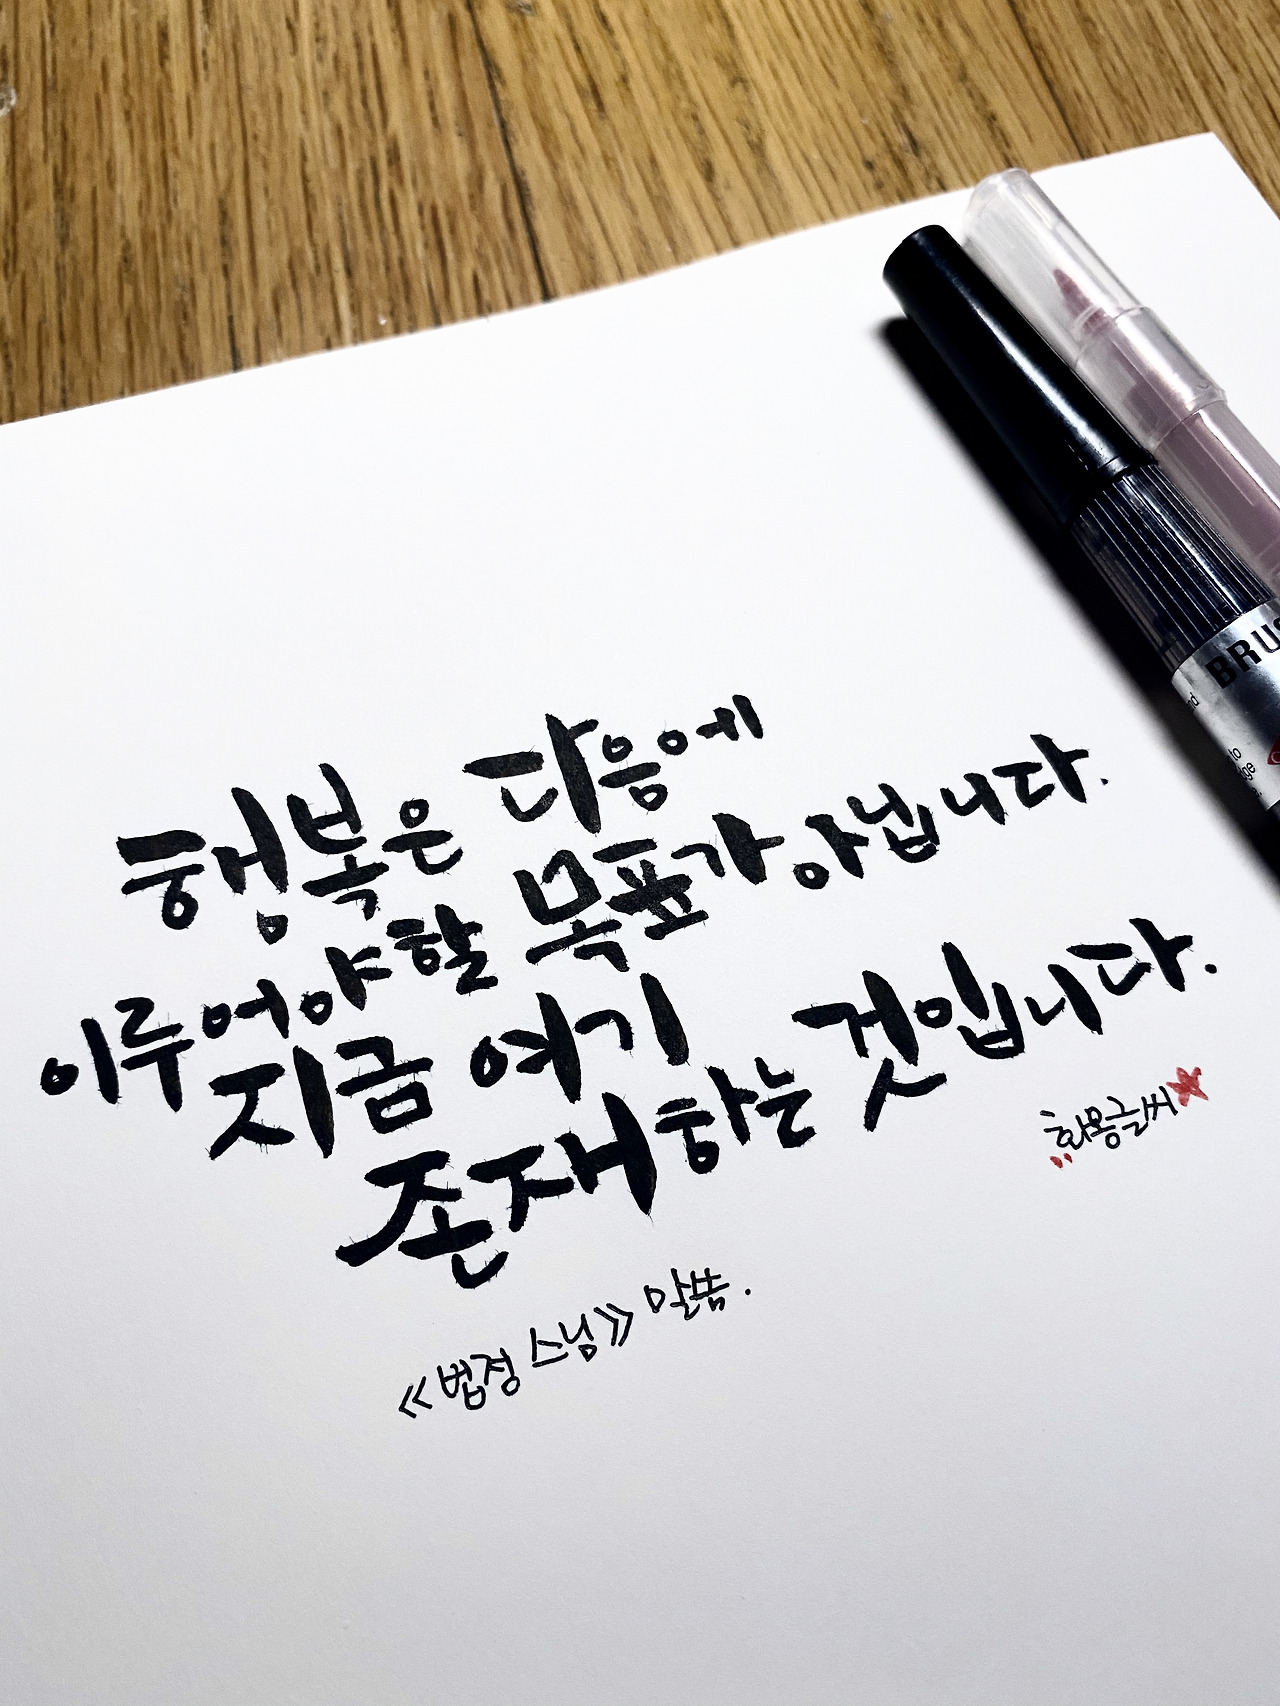 행복은 다음에
이루어야 할 목표가 아닙니다.
지금 여기
존재하는 것입니다.
화몽글씨
《법정 스님》 말씀.